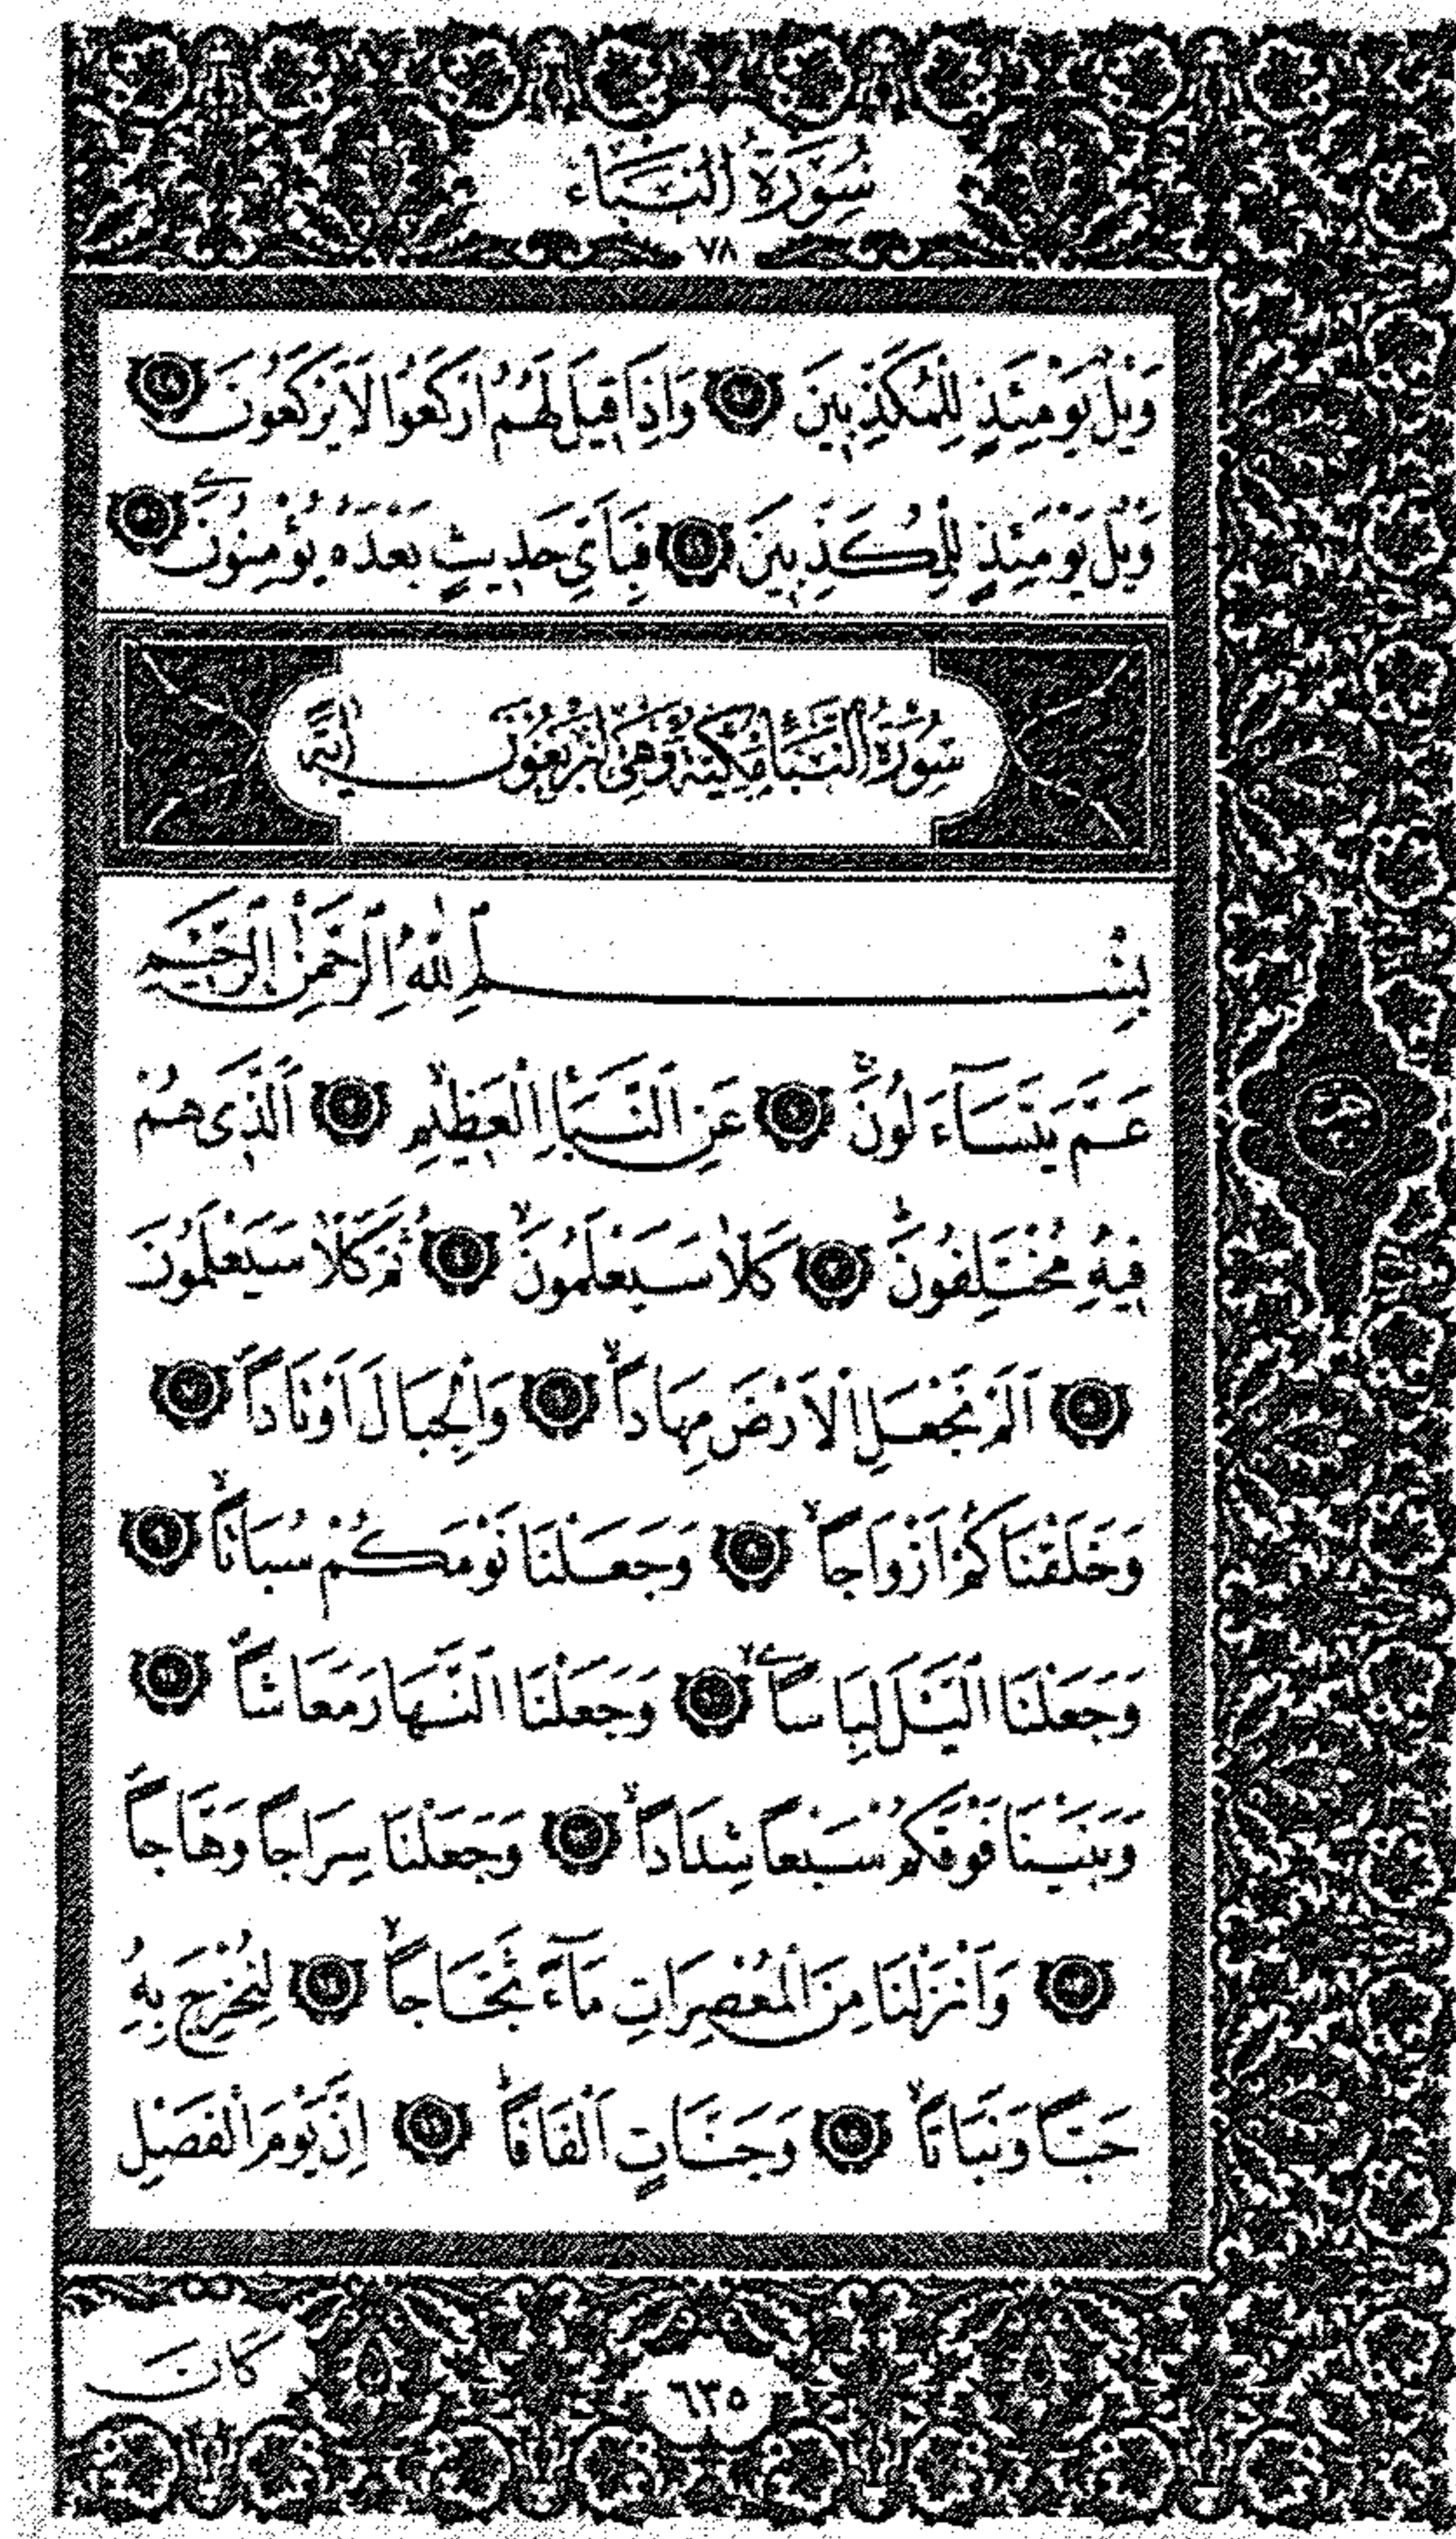 سُورَةُ النَّبَاء
٧٨
وَيْلٌ يَوْمَئِذٍ لِلْمُكَذِّبِينَ ٤٧ وَاِذَا قِيلَ لَهُمُ ارْكَعُوا لَا يَرْكَعُونَ ٤٨
وَيْلٌ يَوْمَئِذٍ لِلْمُكَذِّبِينَ ٤٩ فَبِاَيِّ حَدِيثٍ بَعْدَهُ يُؤْمِنُونَ ٥٠
سُورَةُ النَّبَأِ مَكِّيَّةٌ وَهِيَ اَرْبَعُونَ اٰيَةً
بِسْمِ اللّٰهِ الرَّحْمٰنِ الرَّحِيمِ
عَمَّ يَتَسَآءَلُونَۚ ١ عَنِ النَّبَأِ الْعَظِيمِۙ ٢ اَلَّذِى هُمْ
فِيهِ مُخْتَلِفُونَۜ ٣ كَلَّا سَيَعْلَمُونَۙ ٤ ثُمَّ كَلَّا سَيَعْلَمُونَ
٥ اَلَمْ نَجْعَلِ الْاَرْضَ مِهَادًاۙ ٦ وَالْجِبَالَ اَوْتَادًا ٧
وَخَلَقْنَاكُمْ اَزْوَاجًاۙ ٨ وَجَعَلْنَا نَوْمَكُمْ سُبَاتًاۙ ٩
وَجَعَلْنَا الَّيْلَ لِبَاسًاۙ ١٠ وَجَعَلْنَا النَّهَارَ مَعَاشًا ١١
وَبَنَيْنَا فَوْقَكُمْ سَبْعًا شِدَادًاۙ ١٢ وَجَعَلْنَا سِرَاجًا وَهَّاجًا
١٣ وَاَنْزَلْنَا مِنَ الْمُعْصِرَاتِ مَآءً ثَجَّاجًاۙ ١٤ لِنُخْرِجَ بِهِ
حَبًّا وَنَبَاتًاۙ ١٥ وَجَنَّاتٍ اَلْفَافًاۜ ١٦ اِنَّ يَوْمَ الْفَصْلِ
كَانَ
٦٣٥